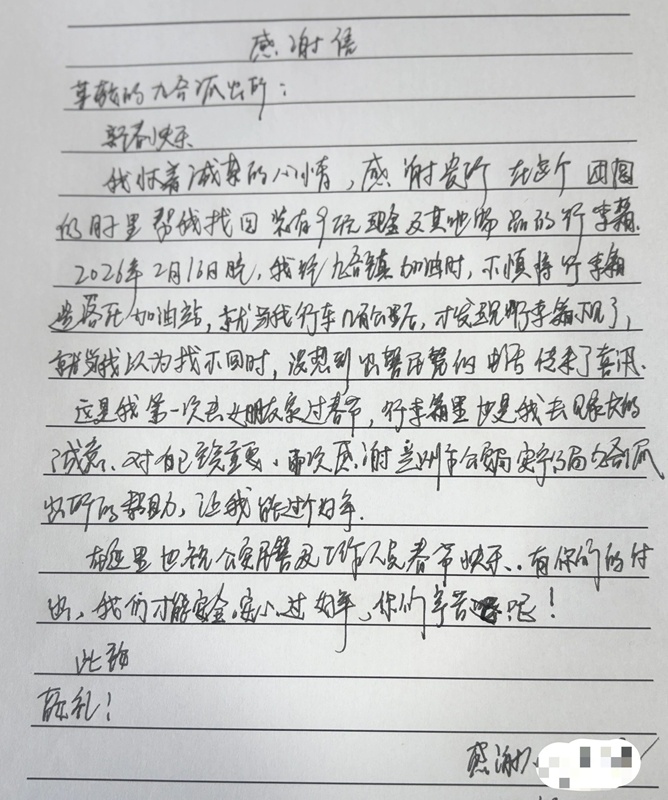 感谢信
尊敬的九合派出所：
新春快乐
我怀着诚挚的心情，感谢贵所在这个团圆
的时里帮我找回装有9玩现金及其他物品的行李箱.
2026年2月16日晚，我经九合镇加油时，不慎将行李箱
遗落在加油站，就当我行车几百公里后，才发现行李箱不见了，
就当我以为找不回时，没想到出警民警的电话传来了喜讯.
这是我第一次去女朋友家过春节，行李箱里也是我去见家长的
诚意、对自己致重要、再次感谢兰州市公安局安宁分局九合派
出所的帮助，让我能过个好年.
在这里也祝公安民警及工作人员春节快乐、有你们的付
出，我们才能安全.安心过好年、你们辛苦呢！
此致
敬礼！
感谢人